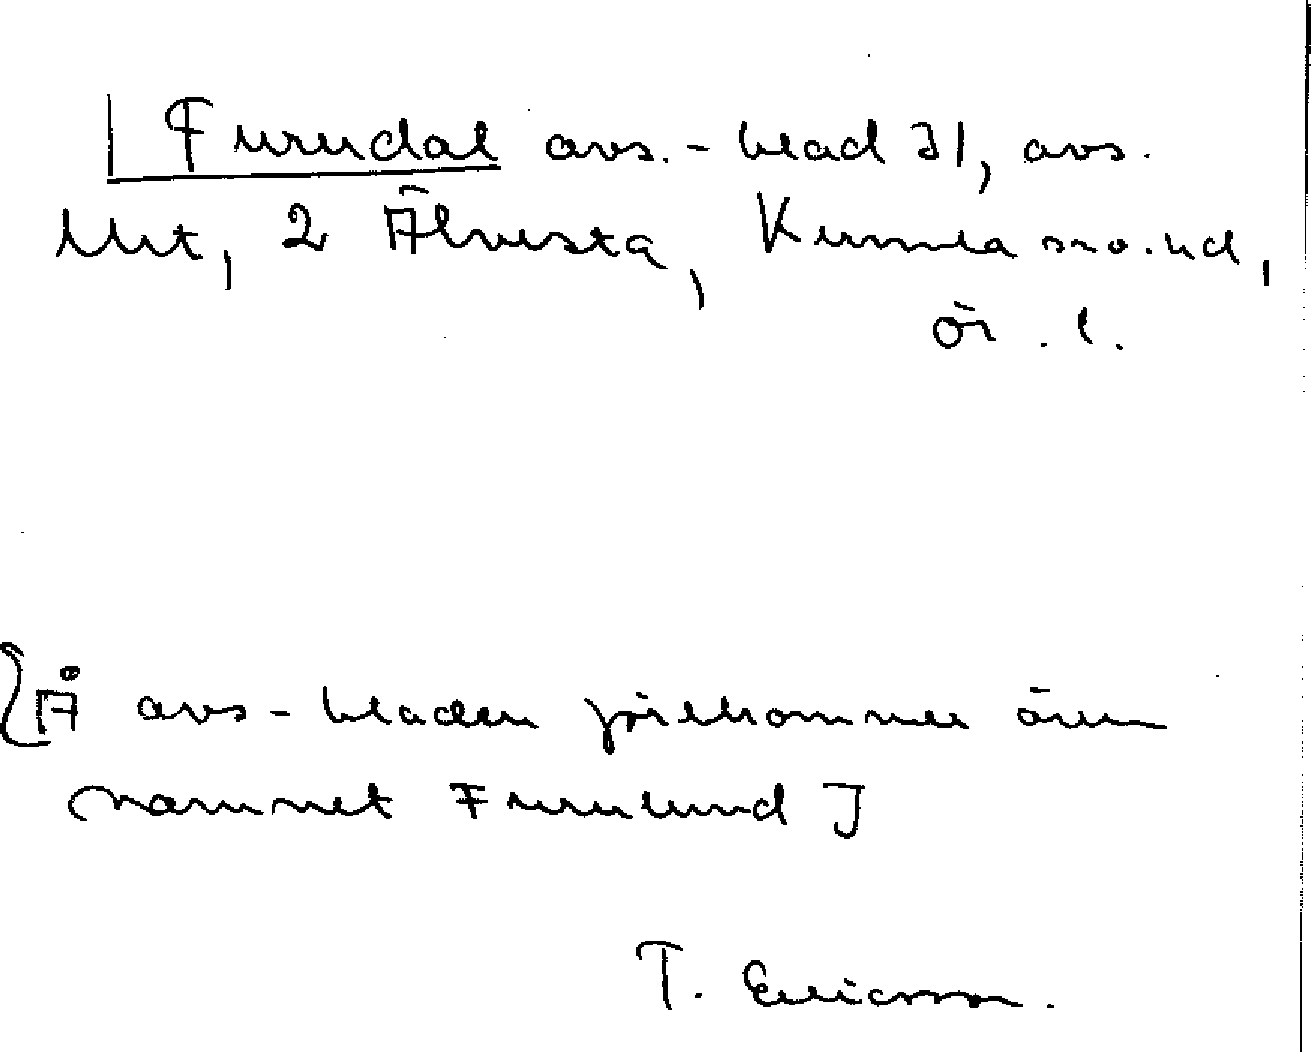 Furudal avs.-blad 31, avs.
2 Älvesta, Kumla sn o. hd,
ör. l.
[Å avs-bladen förekommer även
namnet Furulund]
T. Ericsson.